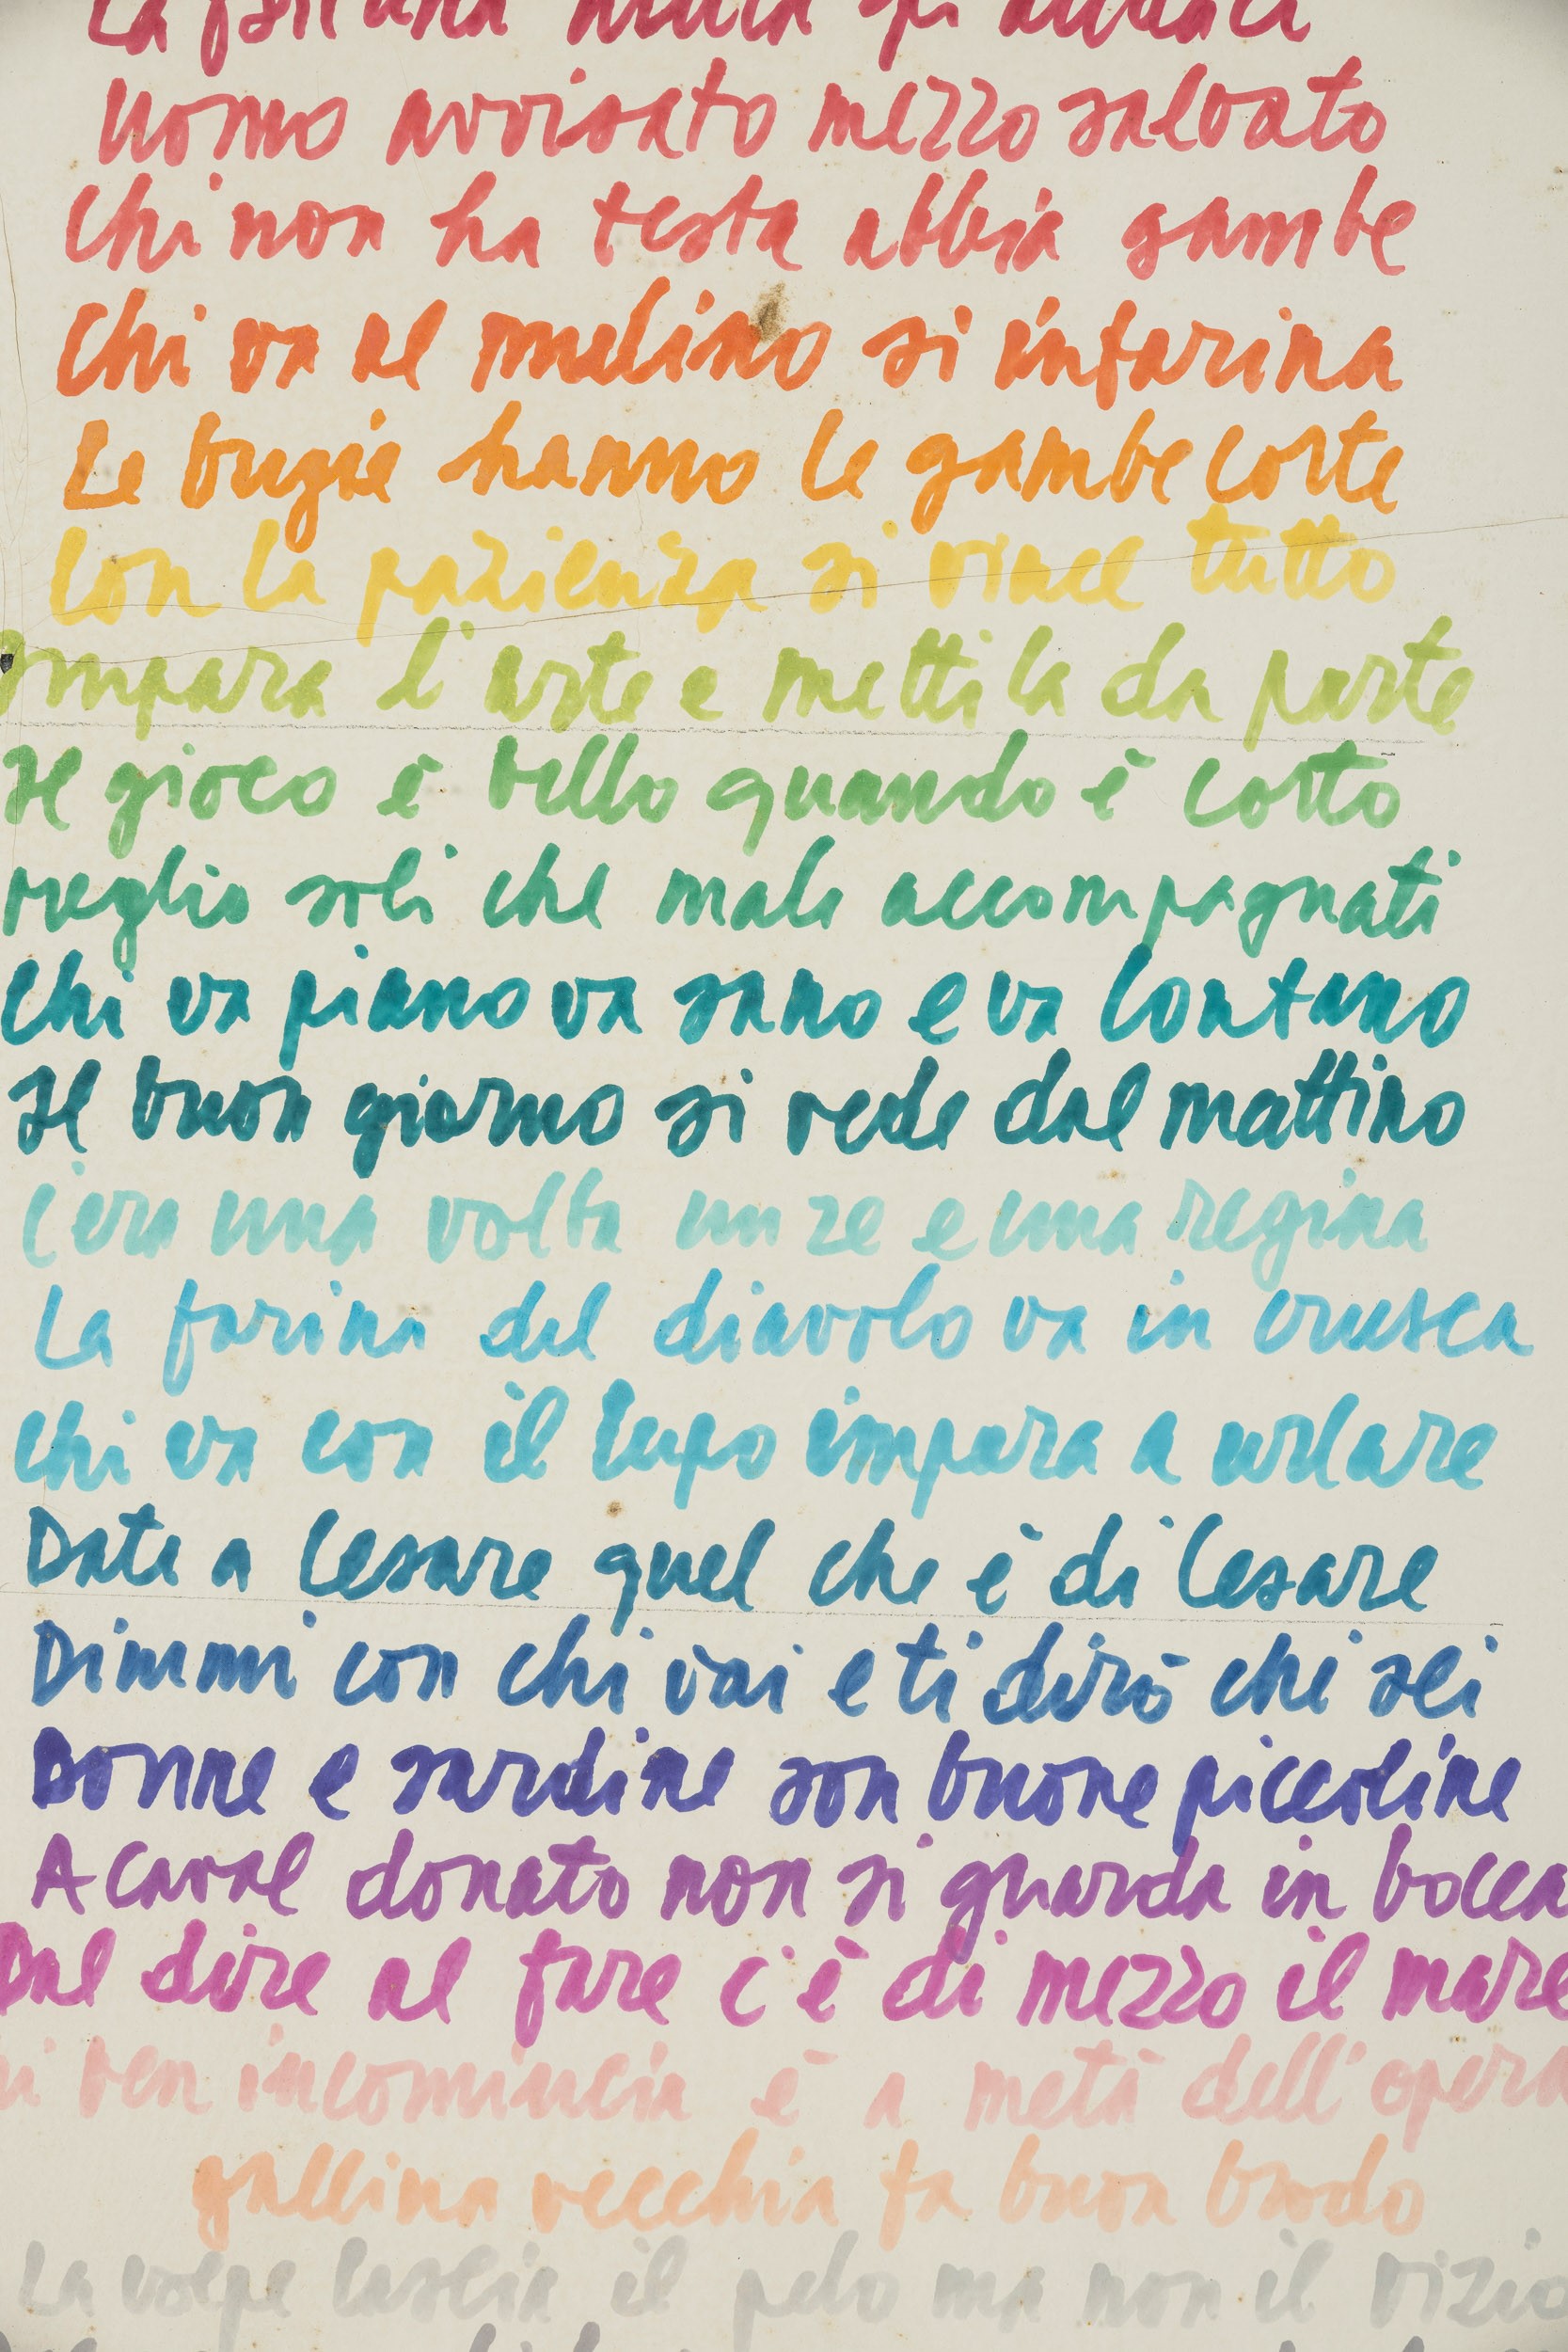 La fortuna aiuta gli audaci
Uomo avvisato mezzo salvato
Chi non ha testa abbia gambe
Chi va al mulino si infarina
Le bugie hanno le gambe corte
Con la pazienza si vince tutto
Impara l'arte e mettila da parte
Il gioco è bello quando è corto
Meglio soli che male accompagnati
Chi va piano va sano e va lontano
Il buon giorno si vede dal mattino
C'era una volta un re e una regina
La farina del diavolo va in crusca
Chi va con il lupo impara a urlare
Date a Cesare quel che è di Cesare
Dimmi con chi vai e ti dirò chi sei
Donne e sardine son buone piccoline
A caval donato non si guarda in bocca
Dal dire al fare c'è di mezzo il mare
hi ben incomincia è a metà dell'opera
gallina vecchia fa buon brodo
La volpe lascia il pelo ma non il vizio